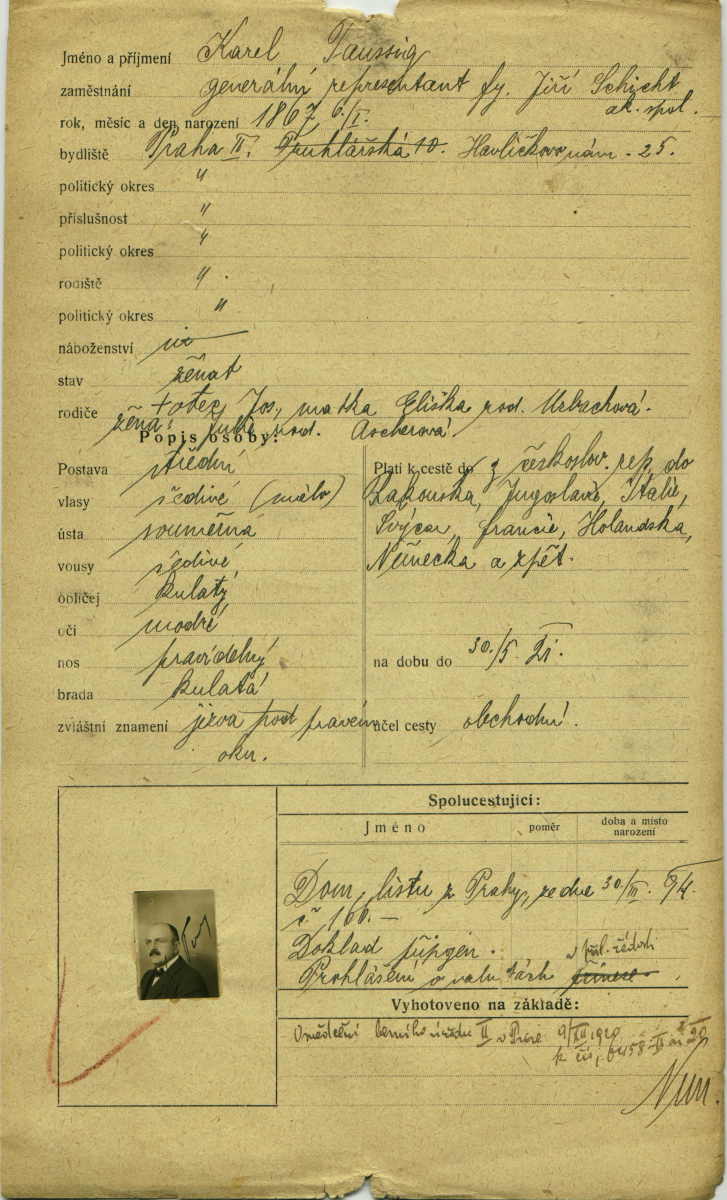 Jméno a příjmení Karel Taussig
zaměstnání generální representant fy. Jiří Schicht
ak. spol.
rok, měsíc a den narození 1867 6./I.
bydliště Praha II. Truhlářská 10. Havlíčkovo nám. 25.
politický okres "
příslušnost "
politický okres "
rodiště "
politický okres "
náboženství
stav ženat
rodiče + otec Jos., matka Eliška rod. Urbachová.
žena: Julie rod. Ascherová.
Popis osoby:
Postava střední
vlasy šedivé (málo)
ústa souměrná
vousy šedivé,
obličej kulatý
oči modré
nos pravidelný
brada kulatá
zvláštní znamení jizva pod pravém
oku.
Platí k cestě do z českoslov. rep. do
Rakouska, Jugoslavie, Italie,
Švýcar, Francie, Holandska,
Německa a zpět.
na dobu do 30./5. 21.
účel cesty obchodní.
Spolucestující:
Jméno poměr doba a místo
narození
Dom. listu z Prahy, ze dne 30/III.
č. 160.—
Doklad
Prohlášení o
Vyhotoveno na základě:
Osvědčení berního úřadu II v Praze 9/XII 1920
k čís.